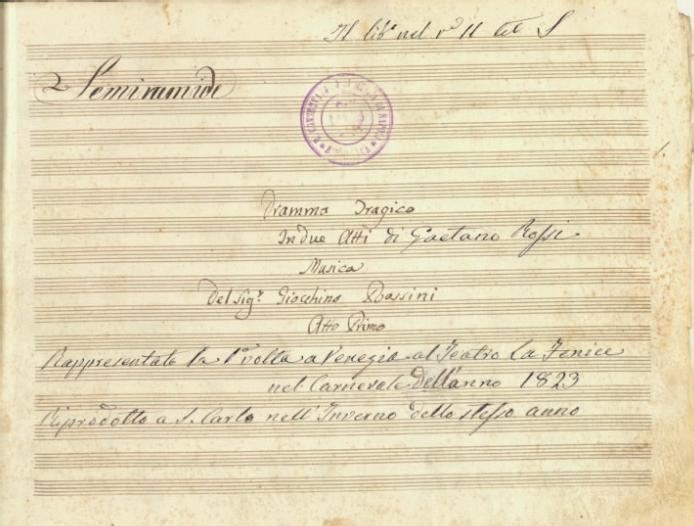 Il lib° nel r° 11 let S
Semiramide
Dramma Tragico
In due Atti di Gaetano Rossi
Musica
Del Sigr. Giocchino Rossini
Atto Primo
Rappresentato la 1° volta a Venezia al Teatro la Fenice
nel Carnevale dell'anno 1823
Riprodotto a S. Carlo nell'Inverno dello stesso anno